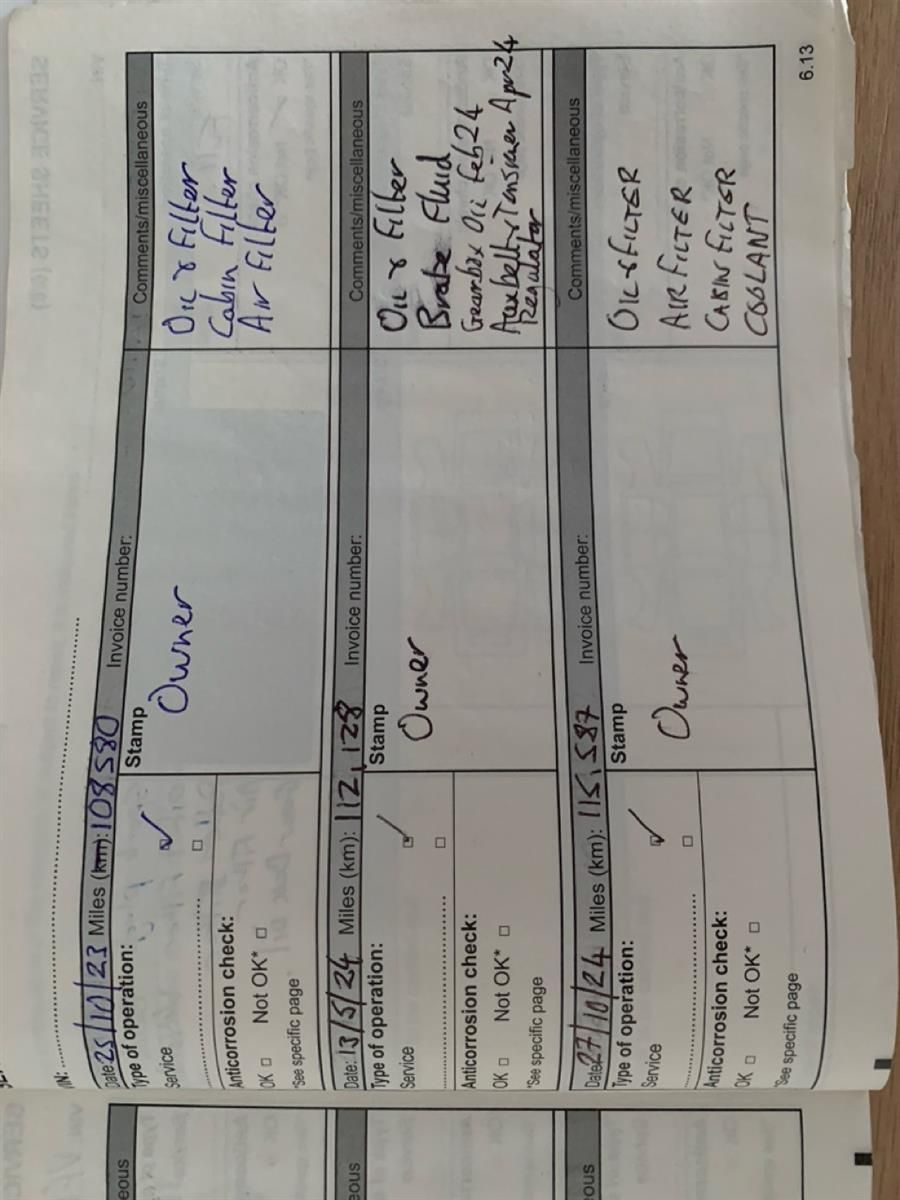 VIN: ..........
Date: 25/10/23 Miles (km): 108580 Invoice number: Comments/miscellaneous
Type of operation: Stamp
Service ☑ Owner
☐
Oil & Filter
Cabin Filter
Air Filter
Anticorrosion check:
OK ☐ Not OK* ☐
*See specific page
Date: 13/5/24 Miles (km): 112,128 Invoice number: Comments/miscellaneous
Type of operation: Stamp
Service ☑ Owner
☐
Oil & Filter
Brake Fluid
Gearbox Oil Feb 24
Auxbelt & Tensioner Apr 24
Regulator
Anticorrosion check:
OK ☐ Not OK* ☐
*See specific page
Date: 27/10/24 Miles (km): 115,587 Invoice number: Comments/miscellaneous
Type of operation: Stamp
Service ☑ Owner
☐
OIL & FILTER
AIR FILTER
CABIN FILTER
COOLANT
Anticorrosion check:
OK ☐ Not OK* ☐
*See specific page
6.13
eous
eous
eous